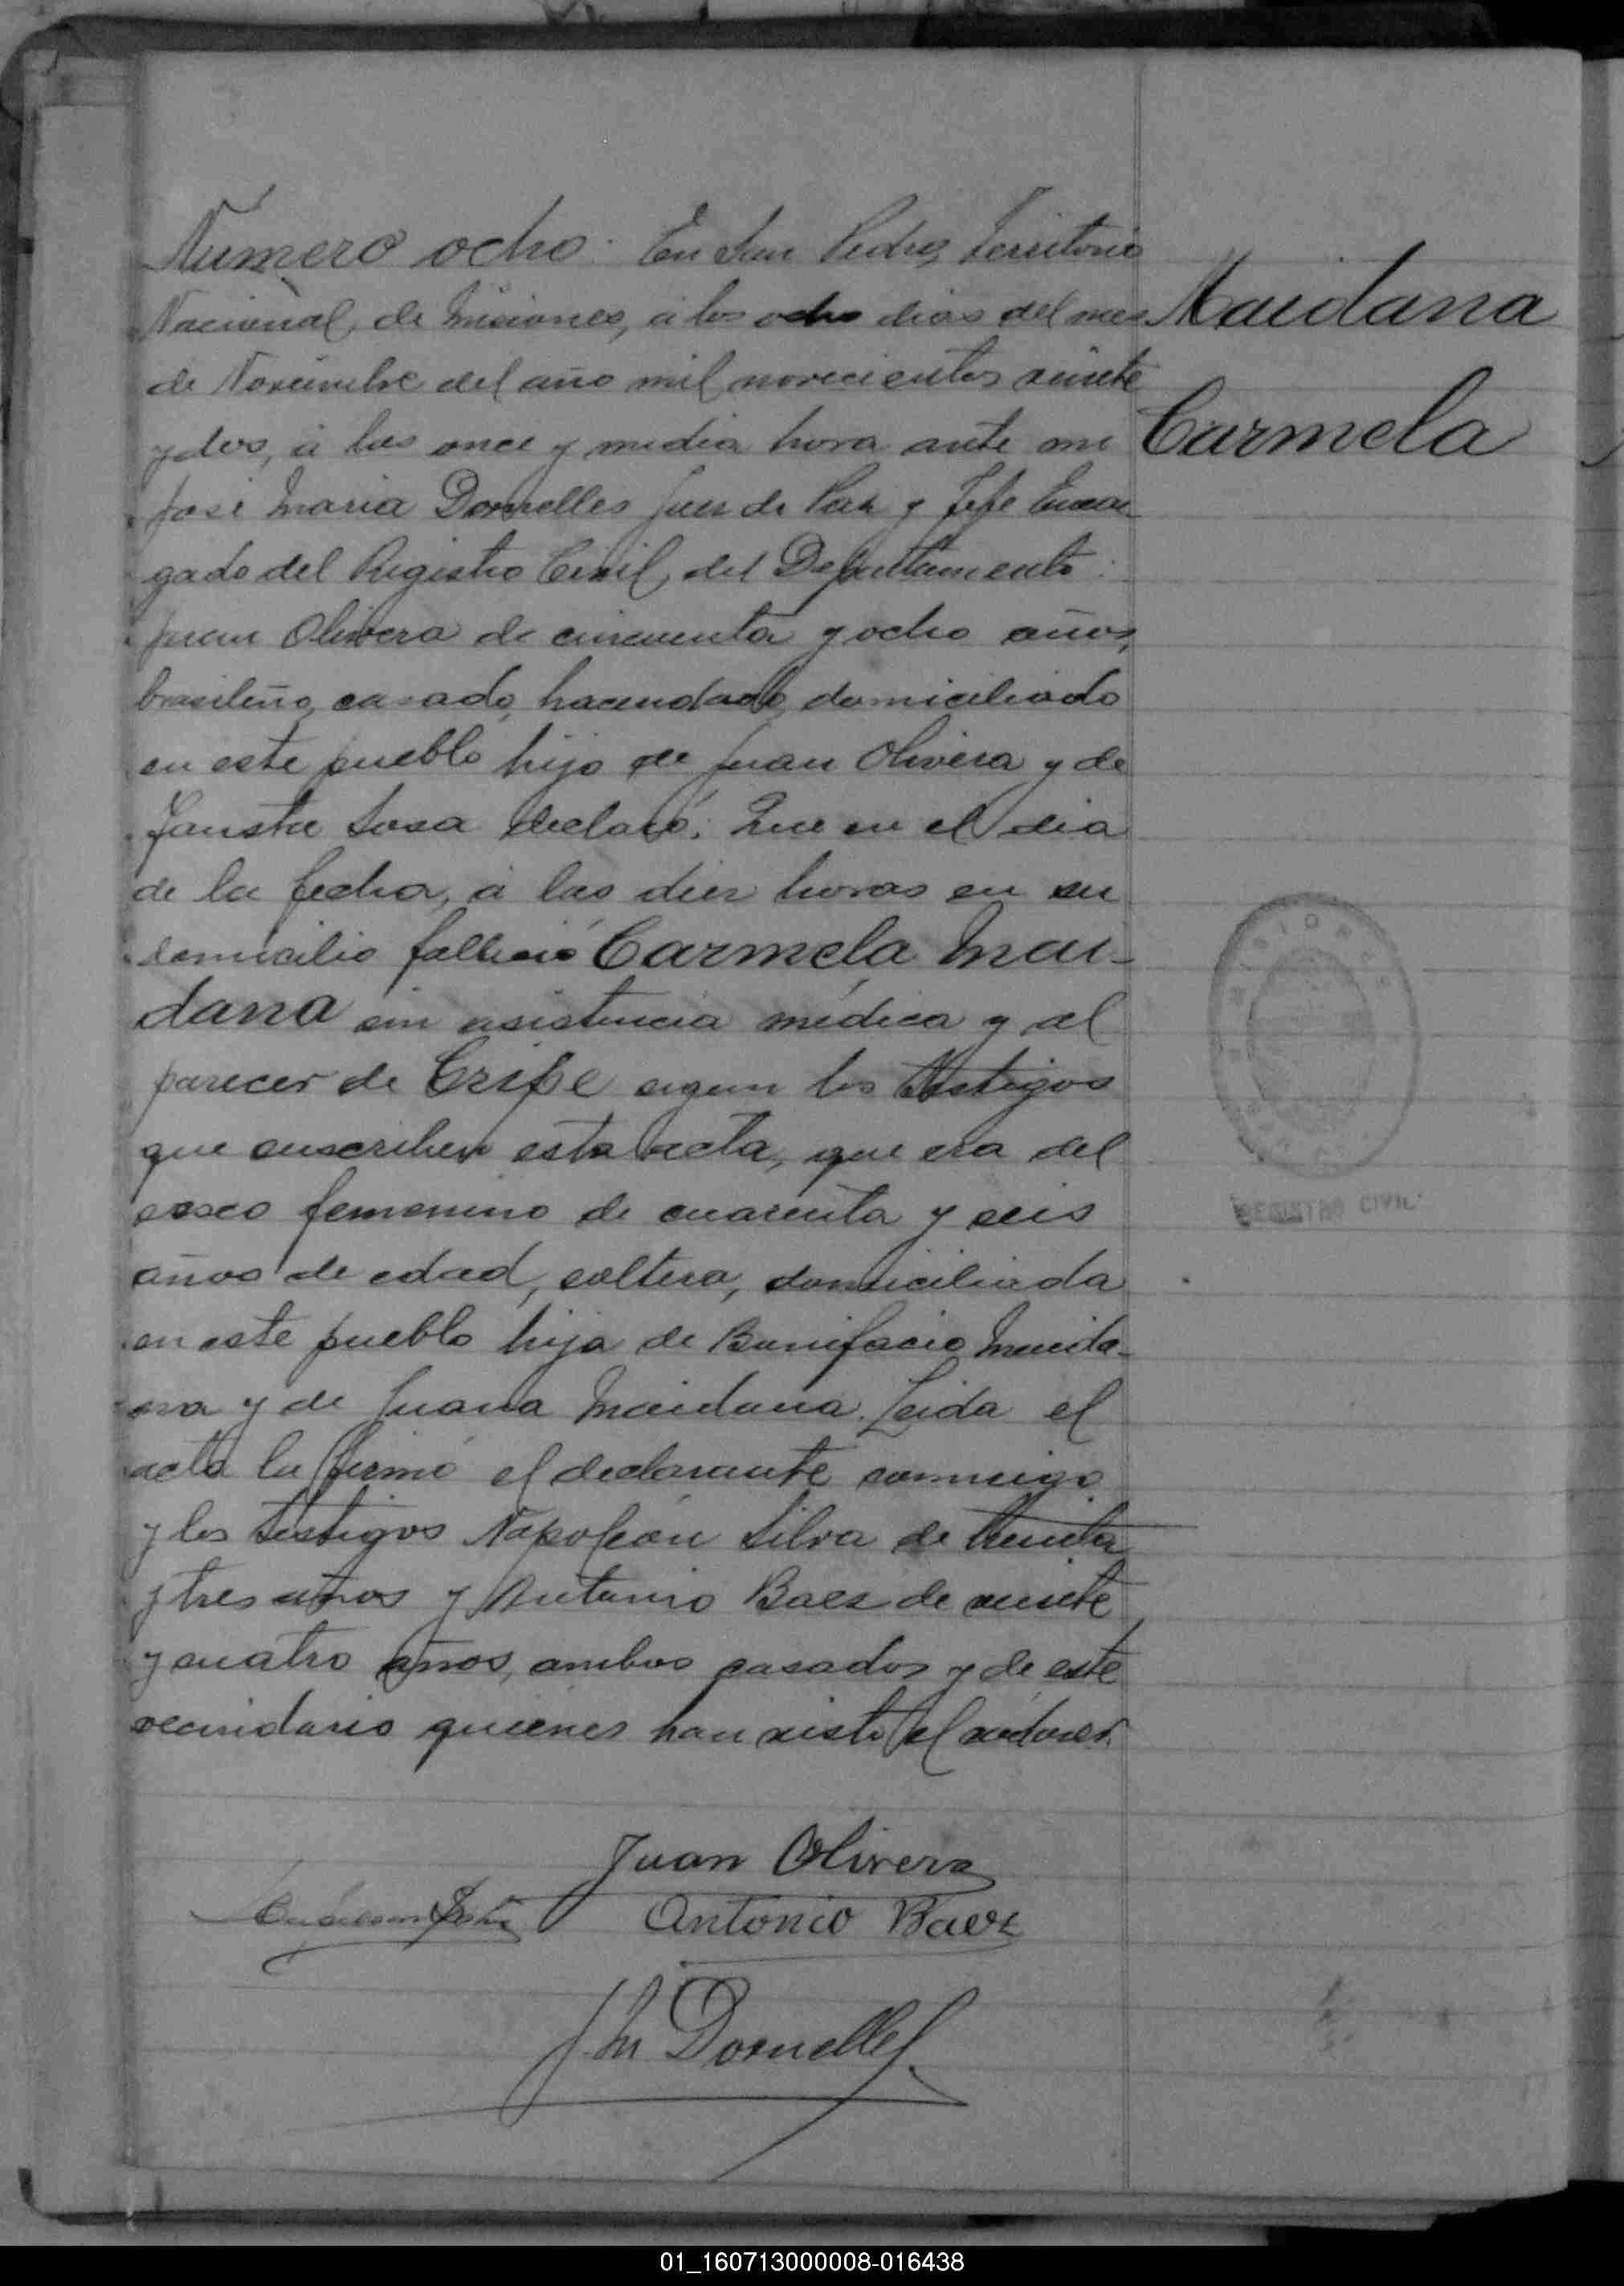 Numero ocho: En San Pedro, Territorio
Nacional, de Misiones, á los ocho dias del mes
Maidana
de Noviembre del año mil novecientos veinte
y dos, á las once y media hora ante mi
Carmela
José Maria Dornelles Juez de Paz y Jefe Encar
gado del Registro Civil, del Departamento:
Juan Olivera de cincuenta y ocho años,
brasileño, casado, hacendado, domiciliado
en este pueblo hijo de Juan Olivera y de
Fausta Sosa declaró: Que en el dia
de la fecha, á las diez horas en su
domicilio falleció Carmela Mai-
dana sin asistencia médica y al
parecer de Gripe segun los testigos
que suscriben esta acta, que era del
sexo femenino de cuarenta y seis
años de edad, soltera, domiciliada
en este pueblo hija de Bonifacio Maida-
na y de Juana Maidana. Leida el
acta la firmó el declarante conmigo
y los testigos Napoleón Silva de treinta
y tres años y Antonio Baez de veinte
y cuatro años, ambos casados y de este
vecindario quienes han visto el cadaver.
MISIONES
REGISTRO CIVIL
Juan Olivera
Antonio Baez
J M Dornelles
01_160713000008-016438